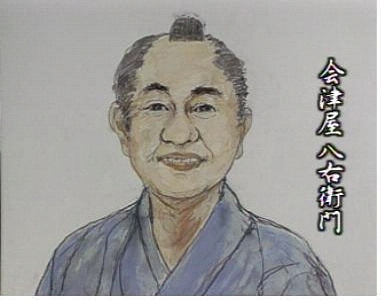 会津屋 八右衛門